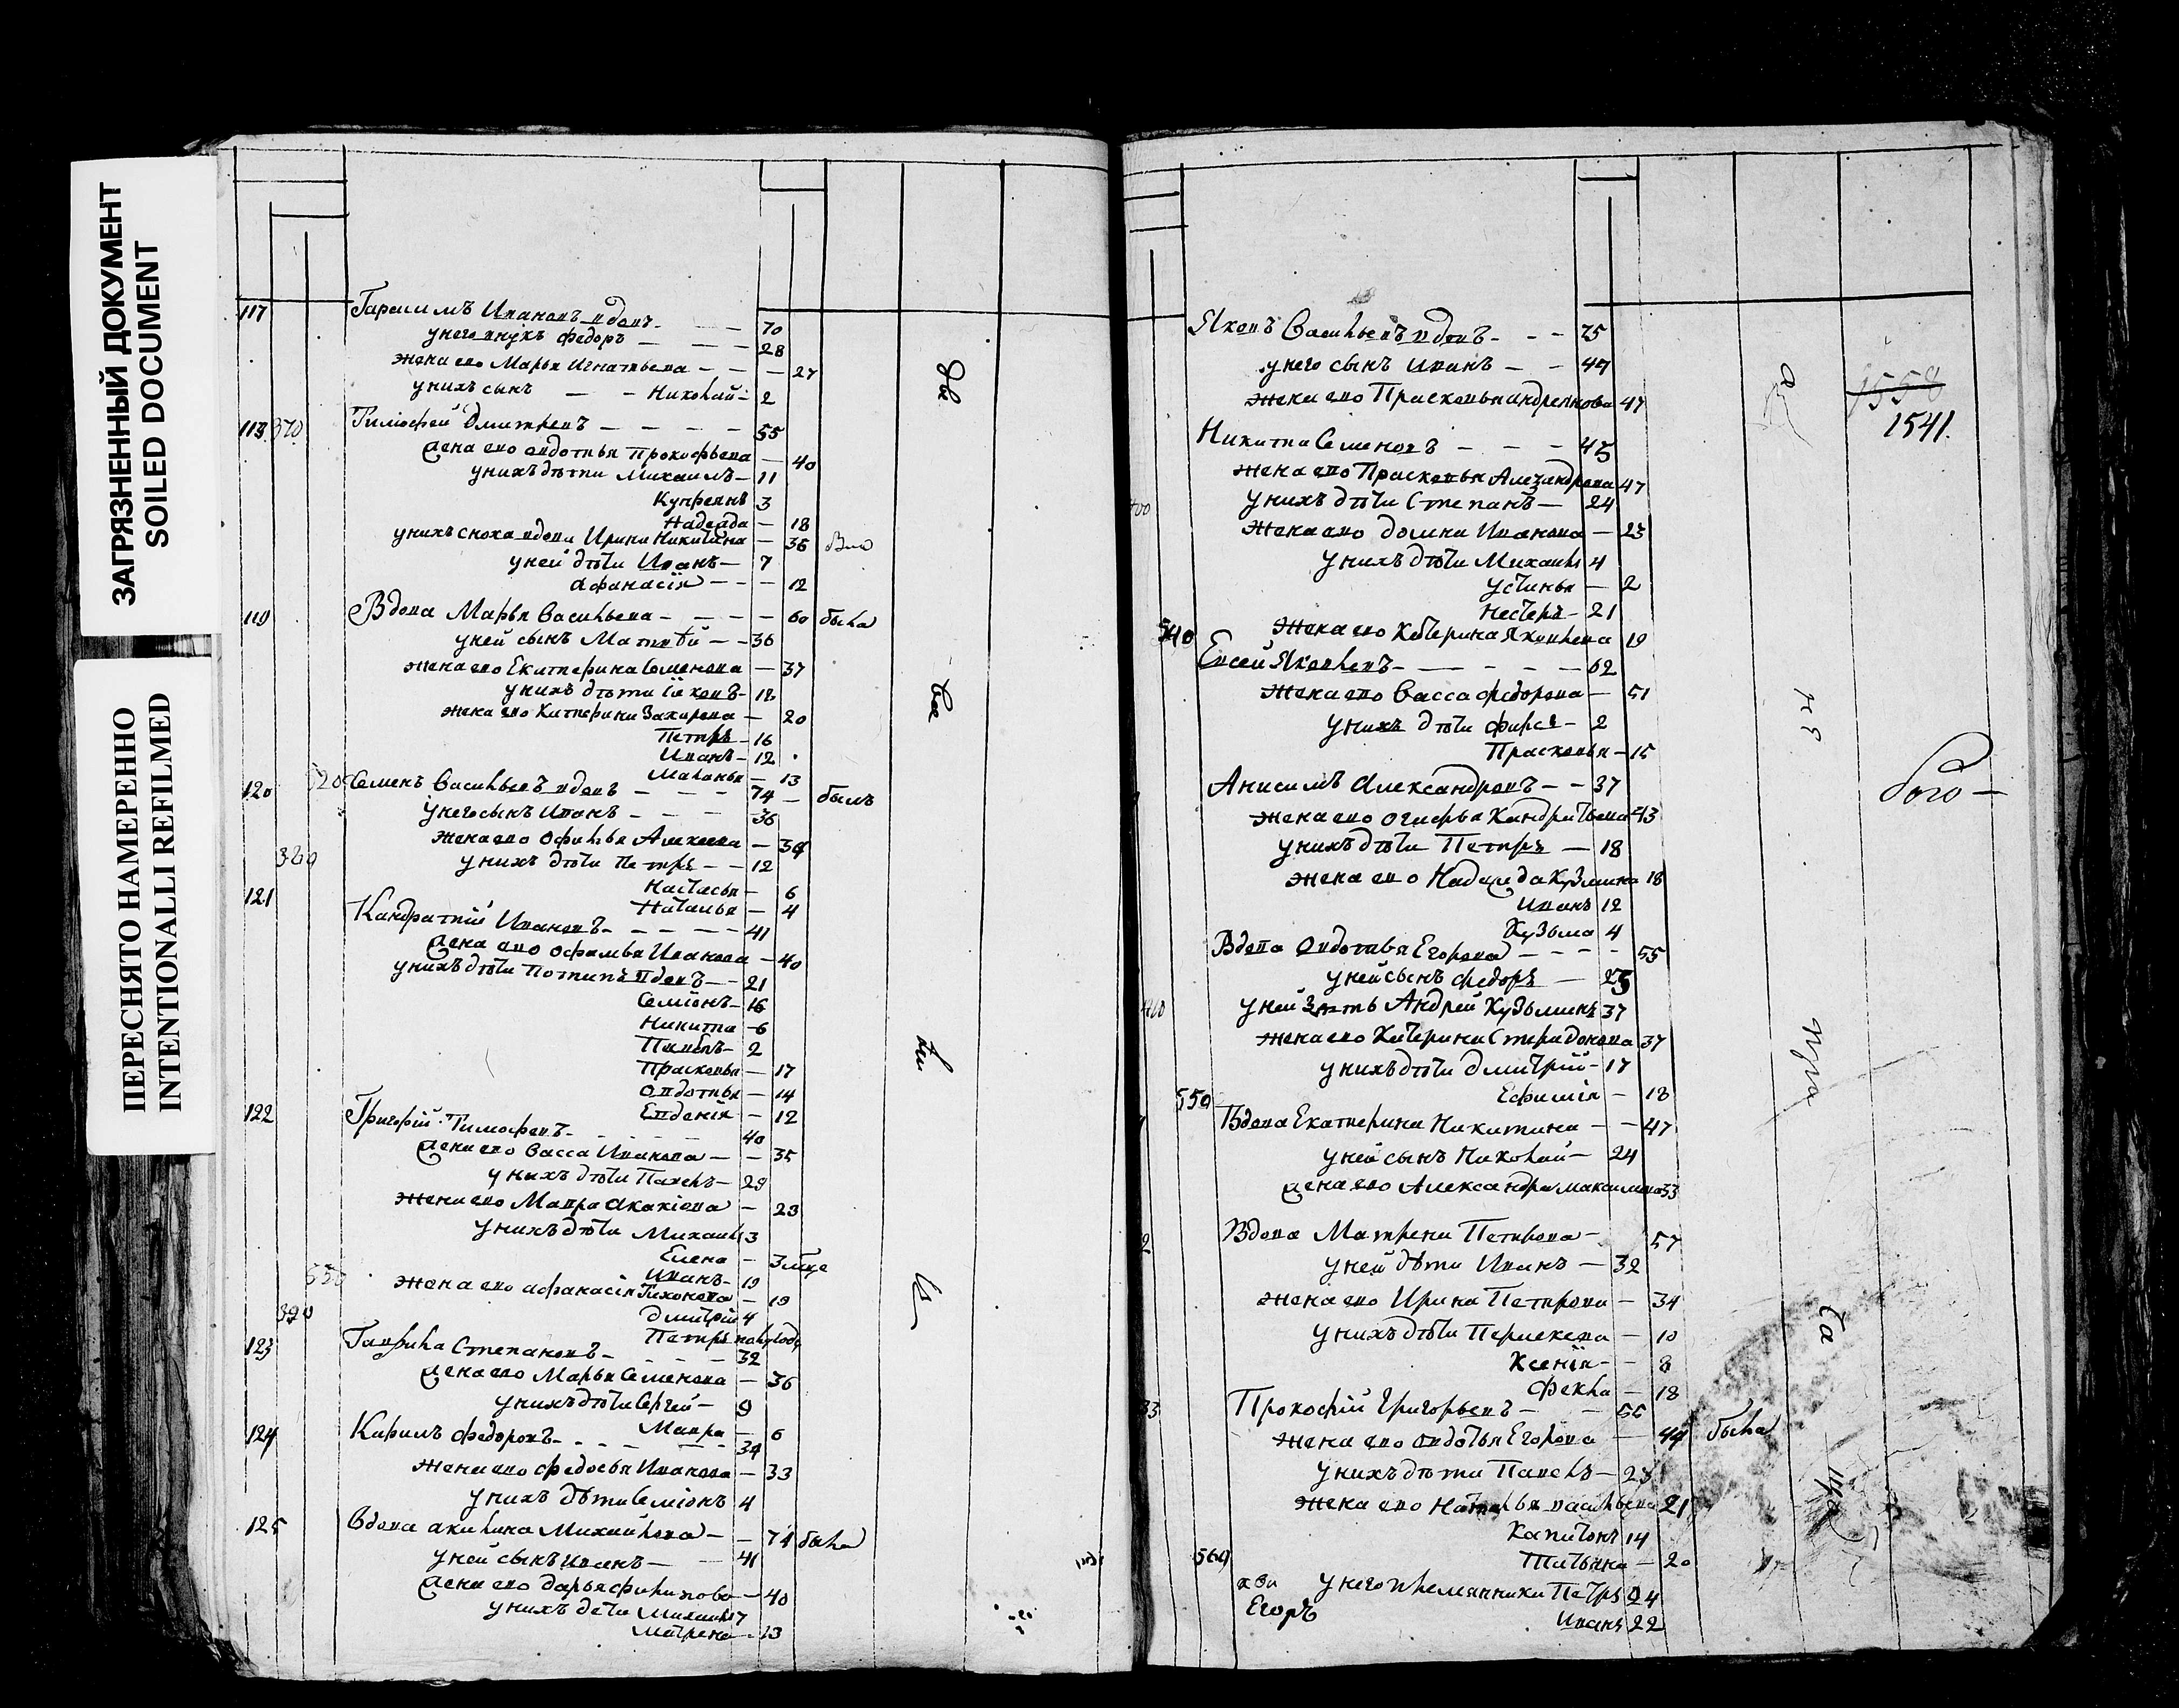 ЗАГРЯЗНЕННЫЙ ДОКУМЕНТ
SOILED DOCUMENT
ПЕРЕСНЯТО НАМЕРЕННО
INTENTIONALLI REFILMED
117 Гарасимъ Ивановъ вдовъ 70
у него внукъ Федоръ 28
жена ево Марья Игнатьева 27
у нихъ сынъ Николай 2
118 370 Тимофей Дмитревъ 55
жена ево Овдотья Прокофьева 40
у нихъ дѣти Михаилъ 11
Купреянъ 3
Надежда 18
у нихъ сноха вдова Ирина Никитина 36
у ней дѣти Иванъ 7
Афанасія 12
119 Вдова Марья Васильева 60 была
у ней сынъ Матвѣй 36
жена ево Екатерина Семенова 37
у нихъ дѣти Яковъ 18
жена ево Катерина Захарова 20
Петръ 16
Иванъ 12
Маланья 13
120 520 Семенъ Васильевъ вдовъ 74 былъ
у него сынъ Иванъ 36
жена ево Офимья Алексеева 39
380 у нихъ дѣти Петръ 12
Настасья 6
Наталья 4
121 Кандратій Ивановъ 41
жена ево Офимья Иванова 40
у нихъ дѣти Потапъ вдовъ 21
Семіонъ 16
Никита 6
Павелъ 2
Прасковья 17
Овдотья 14
Евдокія 12
122 Григорій Тимофевъ 40
жена ево Васса Иванова 35
у нихъ дѣти Павелъ 29
жена ево Мавра Акакіева 23
у нихъ дѣти Михаилъ 3
Елена 3
Иванъ 19
жена ево Афанасія Тихонова 19
390 Дмитрій 4
Петръ полугоду
123 Гаврила Степановъ 32
жена ево Марья Семенова 36
у нихъ дѣти Сергей 9
Мавра 6
124 Карпъ Федоровъ 39
жена ево Федосья Иванова 33
у нихъ дѣти Семіонъ 4
125 Вдова Акилина Михайлова 71 была
у ней сынъ Иванъ 41
жена ево Дарья Филипова 40
у нихъ дети Михаилъ 17
Матрена 13
Яковъ Васильевъ вдовъ 75
у него сынъ Иванъ 47
жена ево Прасковья Андреянова 47
1558
1541.
Никита Семеновъ 45
жена ево Прасковья Александрова 47
400 у нихъ дѣти Степанъ 24
жена ево Домна Иванова 23
у нихъ дѣти Михаилъ 4
Устинья 2
Нестеръ 21
540 жена ево Катерина Яковлева 19
Евсей Яковлевъ 62
жена ево Васса Федорова 51
у нихъ дѣти Фирсъ 2
Прасковья 15
Анисимъ Александровъ 37
жена ево Кандратьева 43
у нихъ дѣти Петръ 18
жена ево Надежда Кузмина 18
Иванъ 12
Кузьма 4
Вдова Овдотья Егорова 55
у ней сынъ Федоръ 25
у ней зять Андрей Кузьминъ 37
жена ево Катерина Спиридонова 37
у нихъ дѣти Дмитрій 17
550 Ефимія 18
Вдова Екатерина Никитина 47
у ней сынъ Николай 24
жена ево Александра Максимова 33
Вдова Матрена Петрова 57
у ней дѣти Иванъ 32
жена ево Ирина Петрова 34
у нихъ дѣти Парасковья 10
Ксенія 8
Фекла 18
Прокофій Григорьевъ 56
жена ево Овдотья Егорова 49 была
у нихъ дѣти Павелъ 23
жена ево Наталья Васильева 21
Капитонъ 14
560 Татьяна 20
у него племянники Петръ 24
Егоръ Иванъ 22